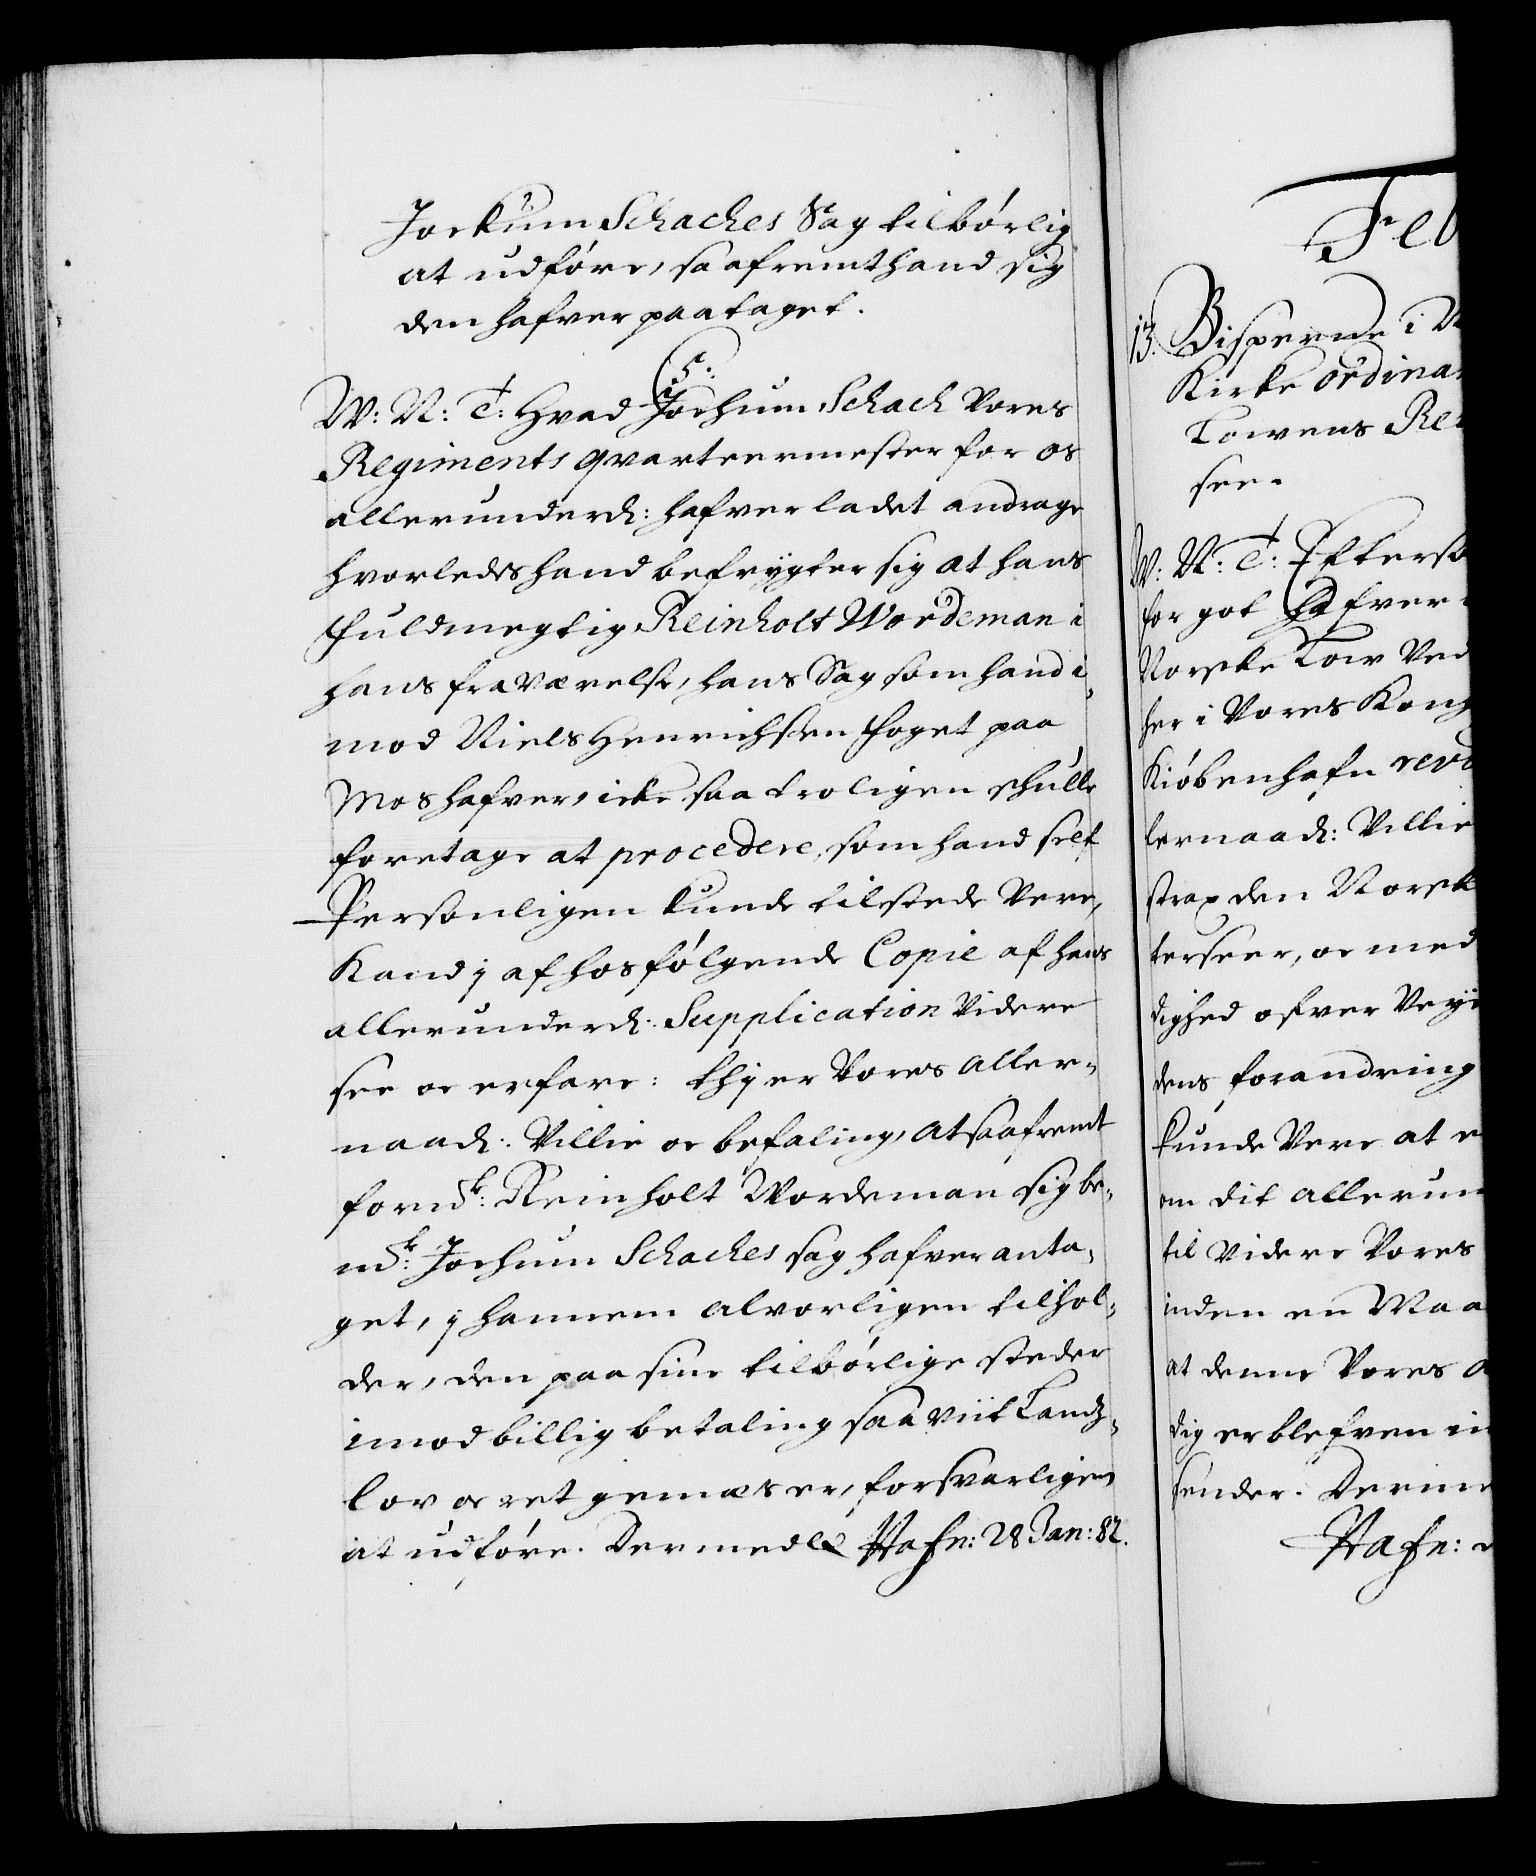 Jockum Schaches Sag tilbørlig
at udføre, saafremt hand sig
den hafver paataget.
W: N: T: Hvad S: Jochum Schach Vores
Regiments qvarteermester for os
allerunderd: hafver ladet andrage
hvorledes hand befrygter sig at hans
fuldmegtig Reinholt Wordeman i
hans fraværelse, hans Sag som hand i,
mod Niels Henrichsen foget paa
Mos hafver, icke saa troligen schulle
foretage at procedere, som hand self
Personligen kunde tilstede Vere,
Kand j af hosfølgende Copie af hans
allerunderd: Supplication Videre
see oc erfare: thj er Vores aller,
naad: Villie oc befaling, at saafremt
forn Sk: Reinholt Wordeman sig be,
m Sk: Jochum Schaches sag hafver anta,
get, j hannem alvorligen tilhol,
der, den paa sine tilbørlige steder
imod billig betaling saa viit Landz,
lov oc ret gemæs er, forsvarligen
at udføre. Dermed &c Hafn: 28 Jan: 82.
Feb
13. Bisperne i N
Kirke ordina
Lowens Re
see.
W: N: T: Efterso
for got hafver
Norske Low Ved
her i Vores Kong
Kiøbenhafn revi
lernaad: Villie
strax den Norsk
terseer, oc med
dighed ofver Veye
dens forandring
kunde Vere at e
en dit allerun
til Videre Vores
inden en Maa
at denne Vores a
dig er blefven in
sender. Derme
Hafn: d